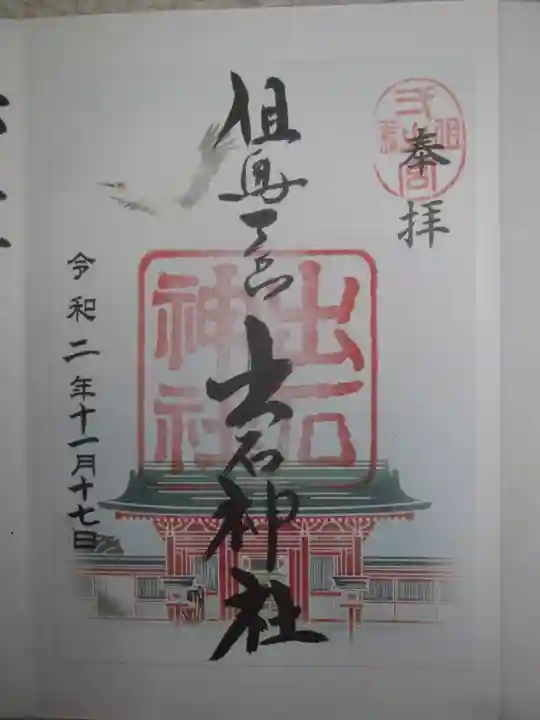 奉拝
但馬一宮 出石神社
出石神社
令和二年十一月十七日